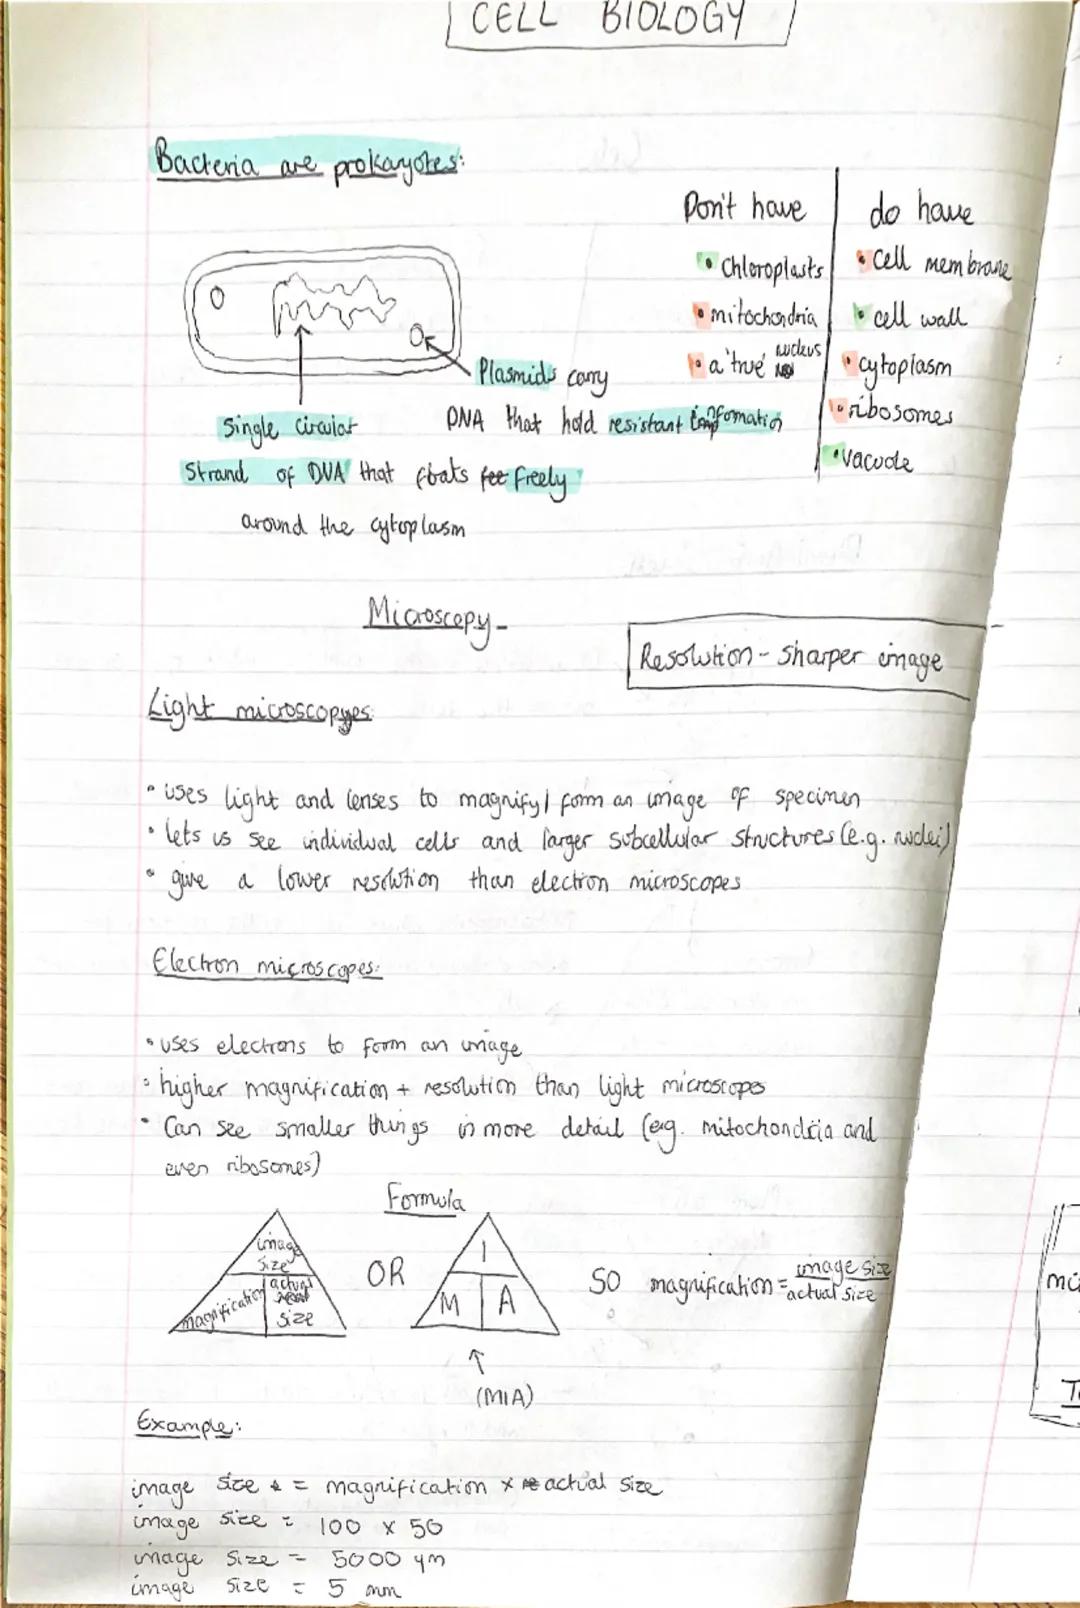 CELL BIOLOGY
Bacteria are prokaryotes:
Don't have
do have
• Chloroplasts
• mitochondria
• a 'true' nucleus
• cell membrane
• cell wall
• cytoplasm
• ribosomes
• vacuole
Plasmids carry
DNA that hold resistant information
Single circular
Strand of DNA that floats freely
around the cytoplasm
Microscopy -
Resolution - sharper image
Light microscopyes:
• uses light and lenses to magnify/ form an image of specimen
• lets us see individual cells and larger subcellular structures (e.g. nuclei)
• give a lower resolution than electron microscopes
Electron microscopes:
• uses electrons to form an image
• higher magnification + resolution than light microscopes
• Can see smaller things in more detail (e.g. mitochondria and
even ribosomes)
Formula
image
size
magnification
actual
size
OR
I
M A
(MIA)
SO magnification = image size
actual size
Example:
image size = magnification x actual size
image size = 100 x 50
image size = 5000 µm
image size = 5 mm